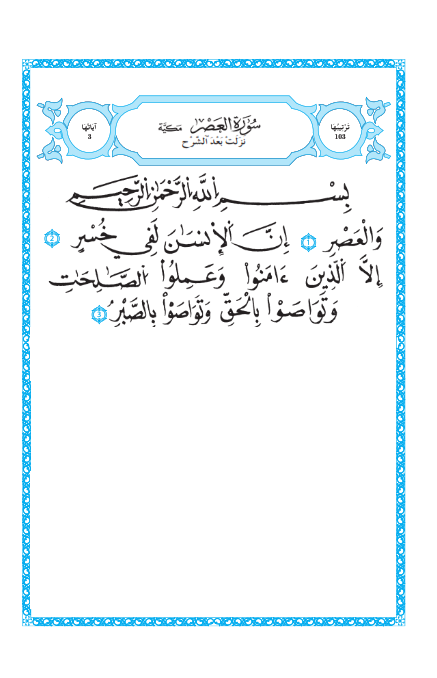 ترتيبها
103
سُورَةُ العَصْرِ مَكيَّة
نزلتْ بَعْدَ الشَّرْح
آياتها
3
بِسْمِ اللَّهِ الرَّحْمَٰنِ الرَّحِيمِ
وَالْعَصْرِ ١ إِنَّ الْإِنسَٰنَ لَفِي خُسْرٍ ٢
إِلَّا الَّذِينَ ءَامَنُواْ وَعَمِلُواْ الصَّٰلِحَٰتِ
وَتَوَاصَوْاْ بِالْحَقِّ وَتَوَاصَوْاْ بِالصَّبْرِ ٣